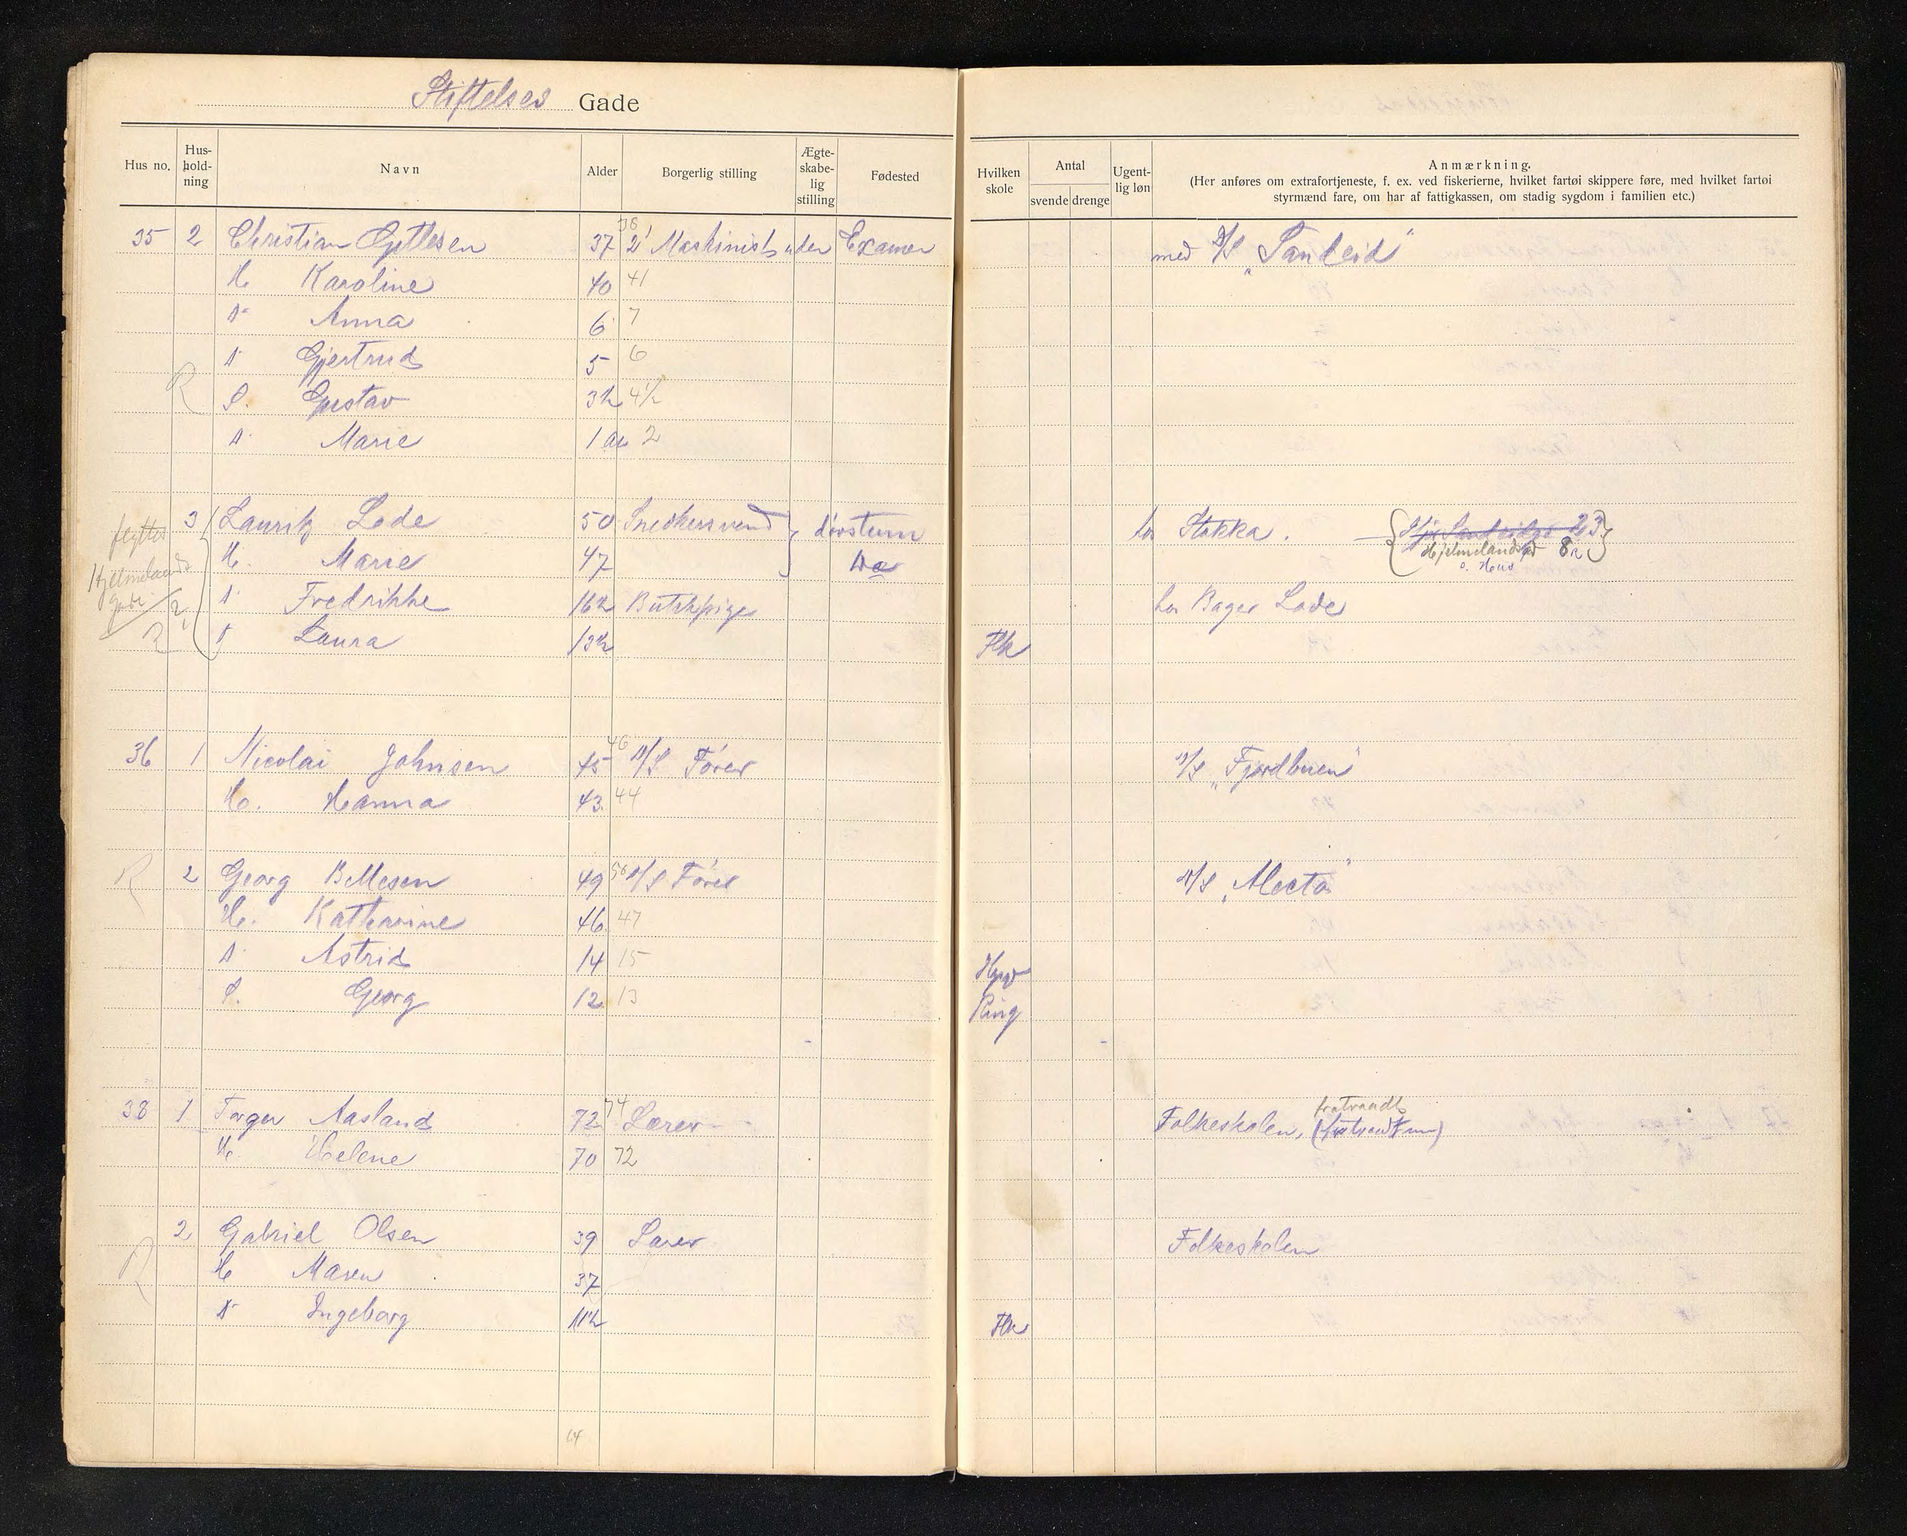 Stiftelses Gade
Hus no. Hus-hold-ning Navn Alder Borgerlig stilling Ægte-skabe-lig stilling Fødested Hvilken skole Antal svende drenge Ugent-lig løn Anmærkning.
(Her anføres om extrafortjeneste, f. ex. ved fiskerierne, hvilket fartøi skippere føre, med hvilket fartøi
styrmænd fare, om har af fattigkassen, om stadig sygdom i familien etc.)
35 2 Christian Gjttlesen 37 38 2' Maskinist uden Examen med D/S "Sandeid"
H. Karoline 40 41
D Anna 6 7
D. Gjertrud 5 6
R S. Gustav 3½ 4½
D. Marie 1 aar 2
flyttet Hjelmelands gade 3 Lauritz Lode 50 Snedkersvend døvstum hos Stokka. 23
H. Marie 47 Do Hjelmelandsgd 8
D. Fredrikke 16½ Butikpige hos Bager Lode
R D Laura 13½ Flk
36 1 Nicolai Johnsen 45 46 D/S Fører D/S "Fjordbuen"
H. Hanna 43 44
R 2 Georg Bellesen 49 50 D/S Fører D/S "Alecto"
H. Katharine 46 47
D. Astrid 14 15
S. Georg 12 13 Ring
38 1 Torger Aasland 72 74 Lærer Folkeskolen, fratraadt
H. Helene 70 72
2 Gabriel Olsen 39 Lærer Folkeskolen
R H Maren 37
D Ingeborg 11½ Flk
64